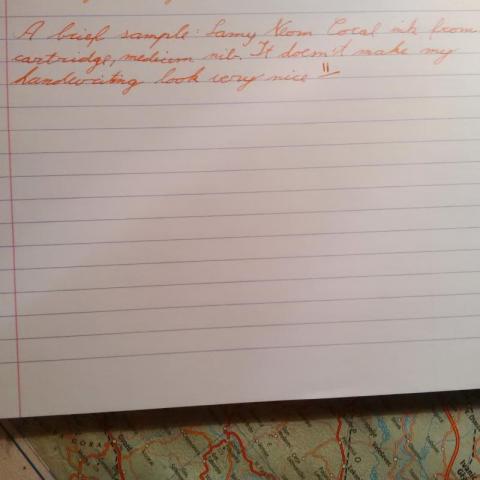 A brief sample: Lamy Neon Coral ink from
cartridge, medium nib. It doesn't make my
handwriting look very nice
GORA